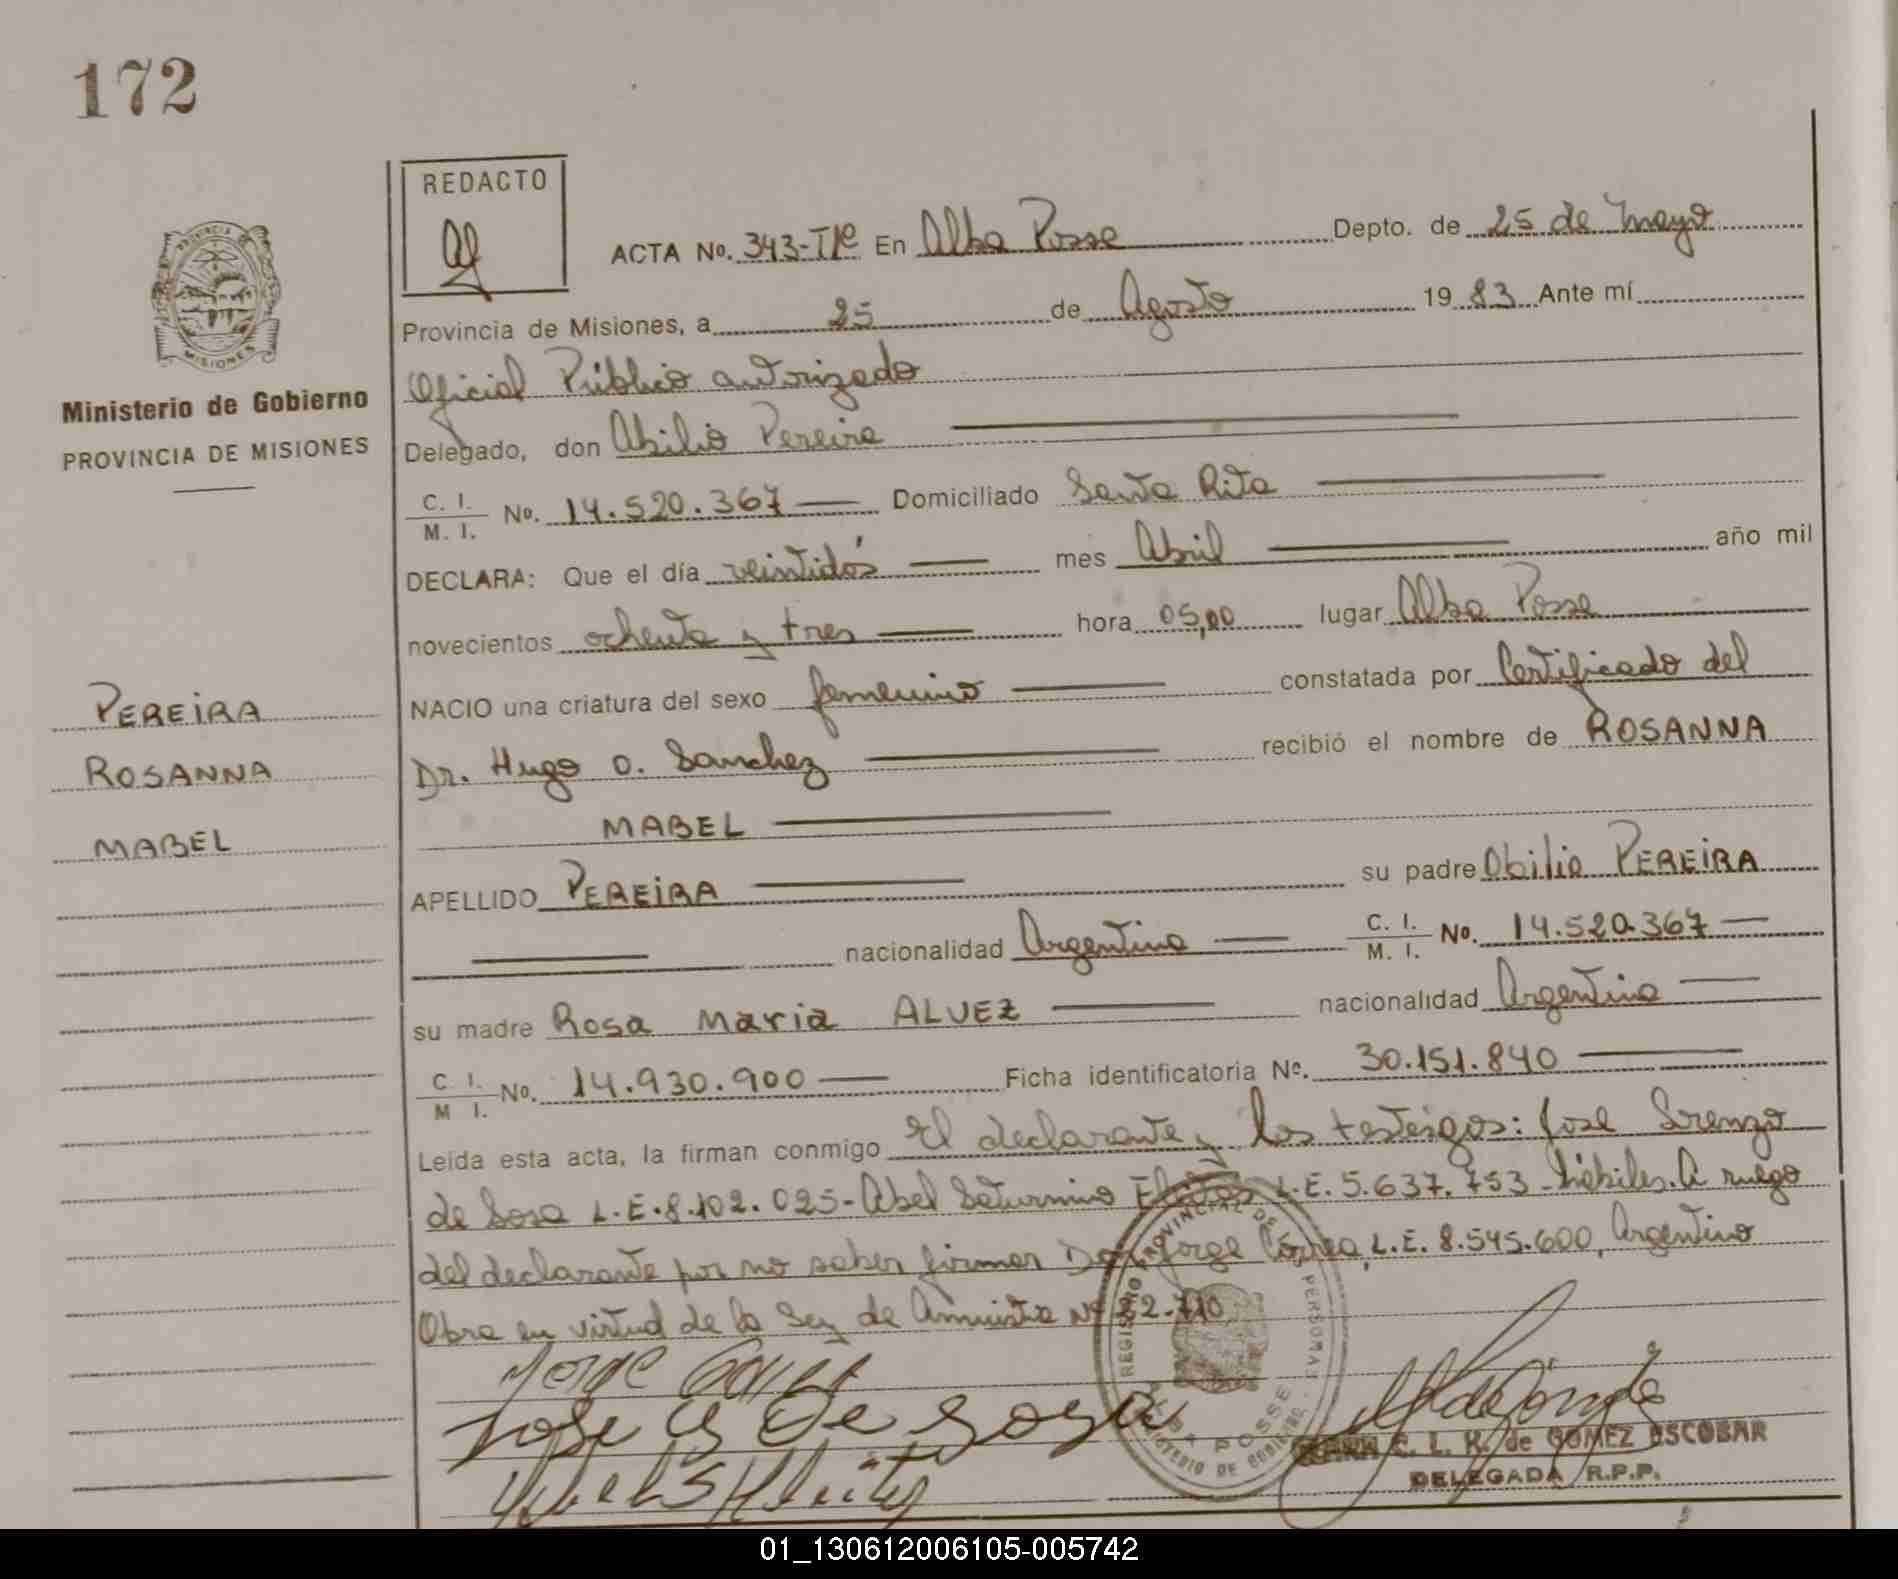 172
REDACTO
ACTA No. 343-Tº1º En Alba Posse Depto. de 25 de Mayo
Provincia de Misiones, a 25 de Agosto 1983 Ante mí
Oficial Público autorizado
Delegado, don Abilio Pereira
C. I. / M. I. No. 14.520.367 Domiciliado Santa Rita
DECLARA: Que el día veintidós mes Abril año mil
novecientos ochenta y tres hora 05,00 lugar Alba Posse
NACIO una criatura del sexo femenino constatada por Certificado del
Dr. Hugo O. Sanchez recibió el nombre de ROSANNA
MABEL
APELLIDO PEREIRA su padre Abilio PEREIRA
nacionalidad Argentina C. I. / M. I. No. 14.520.367
su madre Rosa Maria ALVEZ nacionalidad Argentina
C. I. / M I. No. 14.930.900 Ficha identificatoria No. 30.151.840
Leída esta acta, la firman conmigo El declarante y los testeigos: José Lorenzo
de Sosa L.E. 8.102.025 - Abel Saturnino L.E. 5.637.753 - hábiles. A ruego
del declarante por no saber firmar Don Jorge Córrea, L.E. 8.545.600, Argentino
Obra en virtud de la Ley de Amnistia Nº 22.710
Jose de Sosa
REGISTRO PROVINCIAL DE PERSONAS
ALBA POSSE
MINISTERIO DE GOBIERNO
C. L. K. de GOMEZ ESCOBAR
DELEGADA R.P.P.
PROVINCIA DE
MISIONES
Ministerio de Gobierno
PROVINCIA DE MISIONES
PEREIRA
ROSANNA
MABEL
01_130612006105-005742